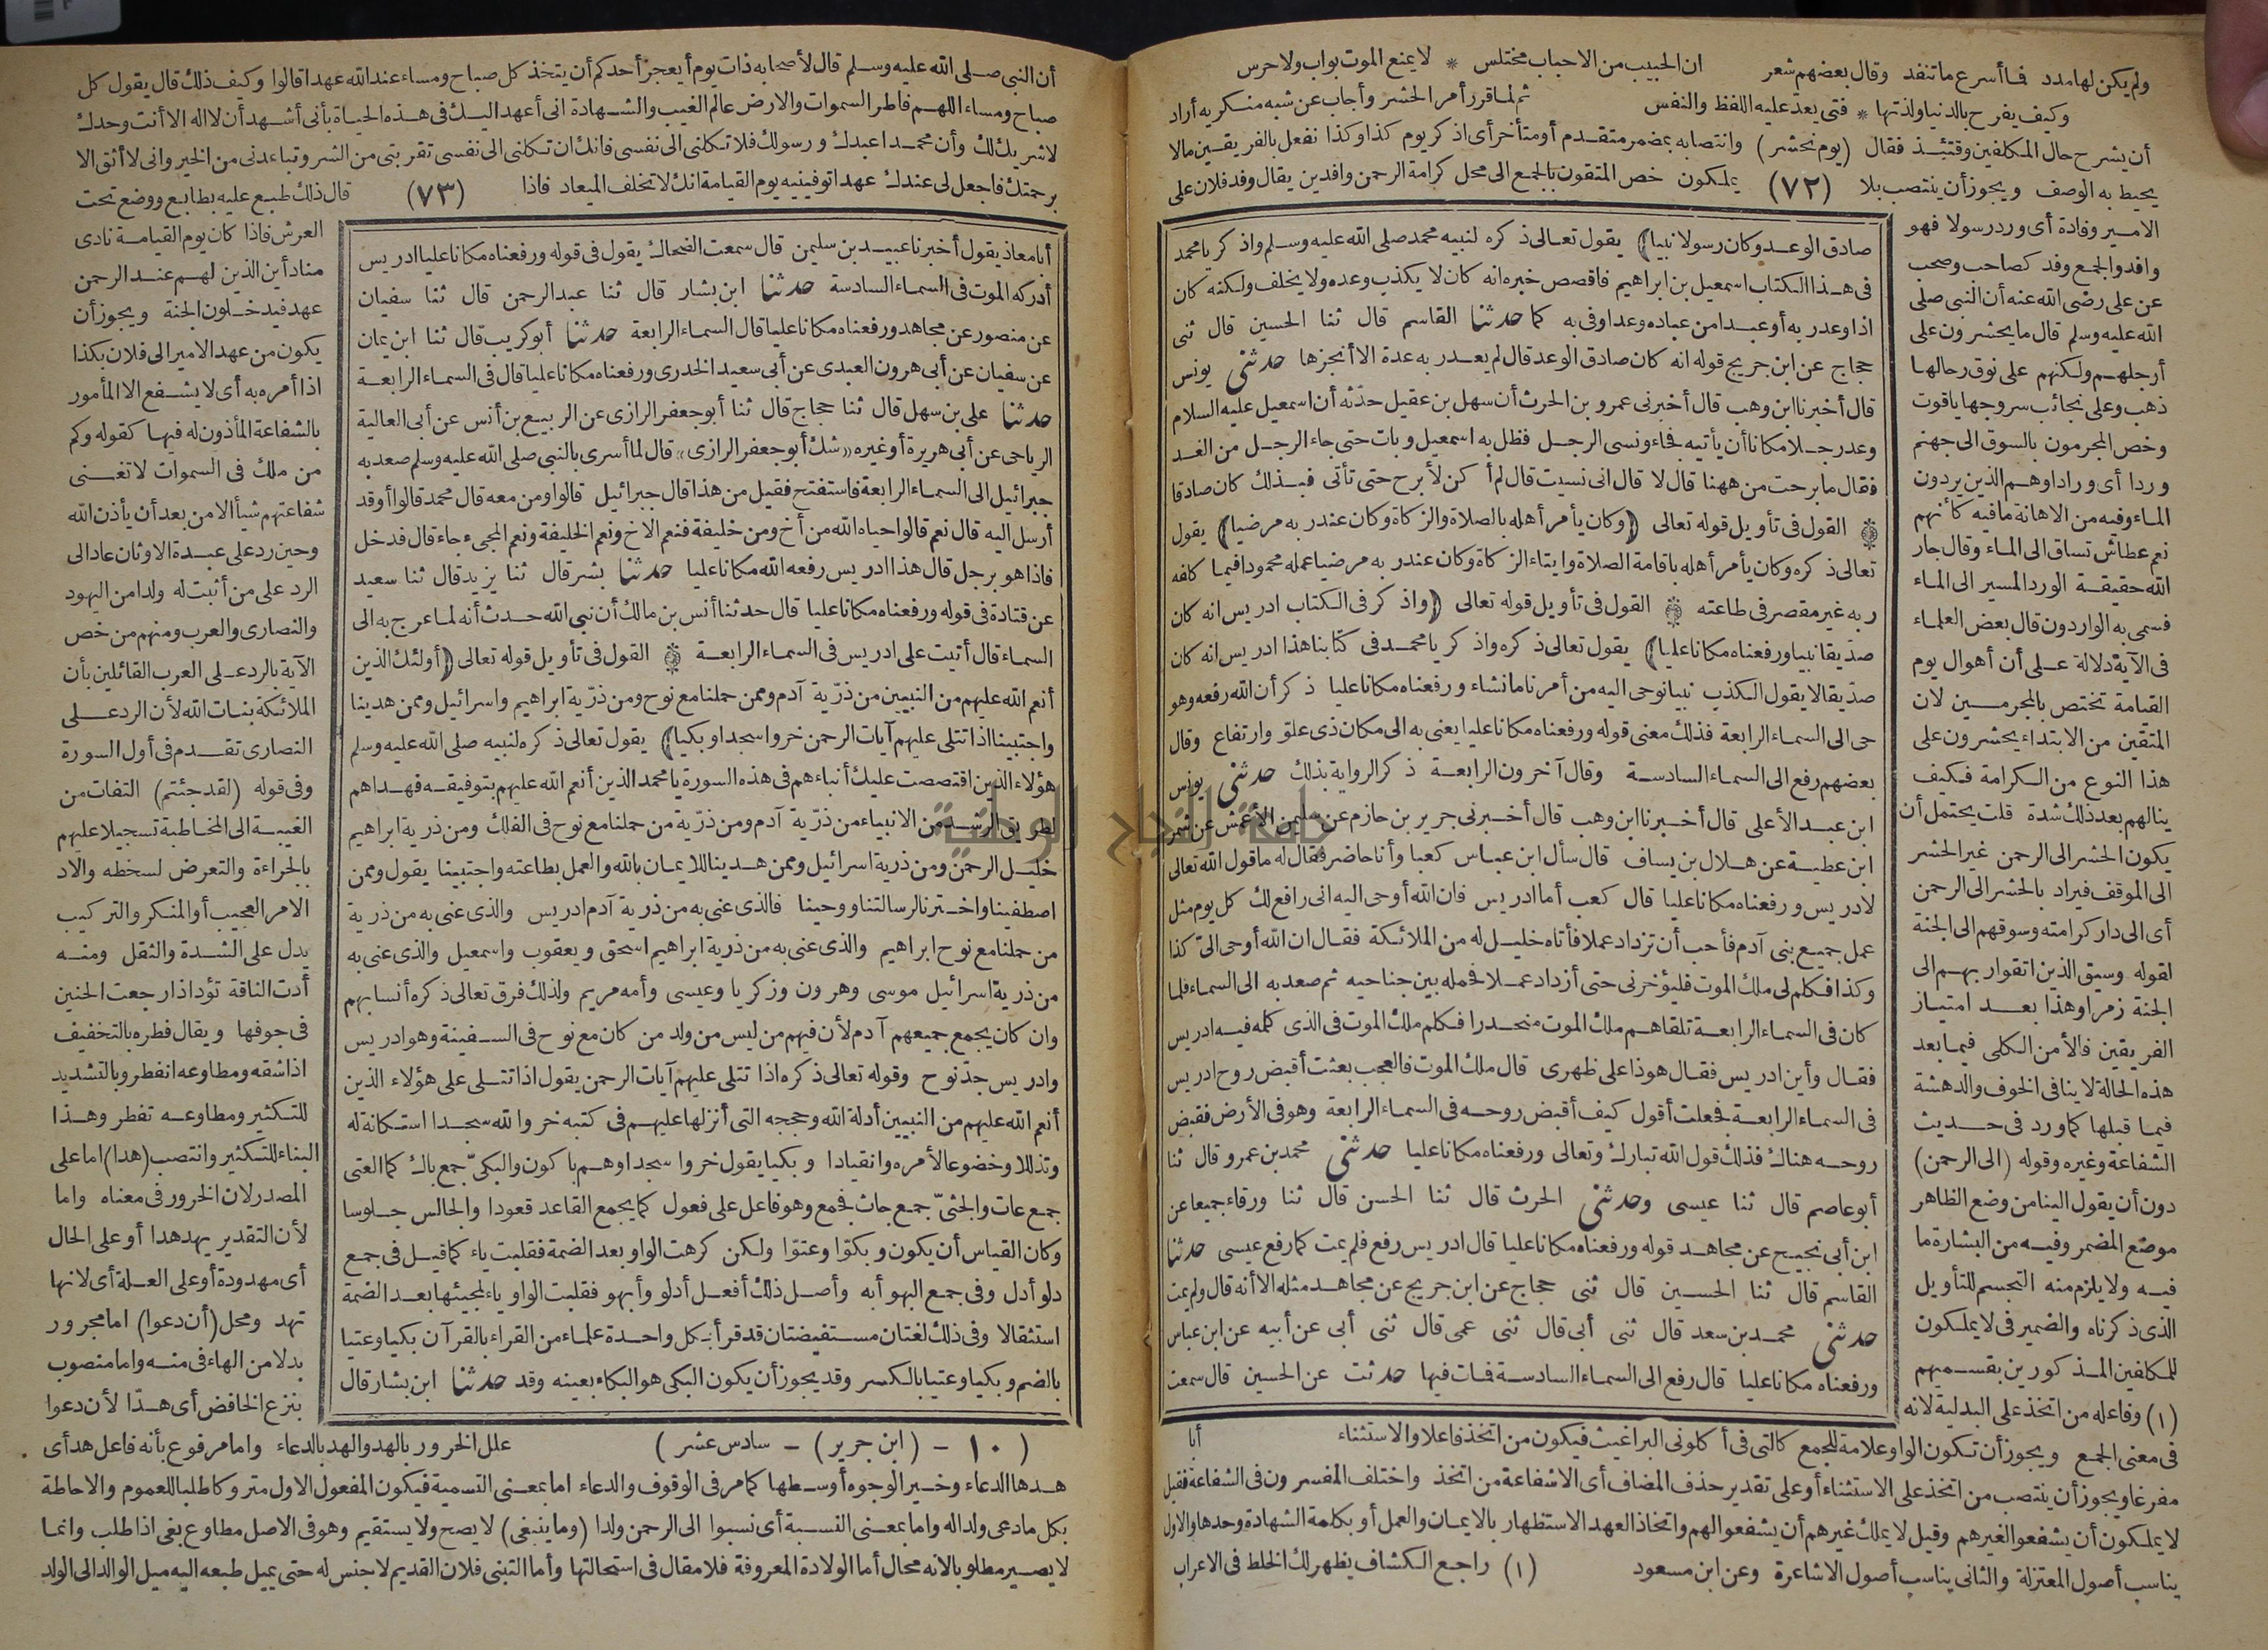 ولم يكن لها مدد فما أسرع ما تنفد وقال بعضهم شعر ان الحبيب من الاحباب مختلس * لا يمنع الموت بواب ولا حرس
وكيف يفرح بالدنيا ولذتها * فتى يعد عليه اللفظ والنفس ثم لما قرر أمر الحشر وأجاب عن شبه منكريه أراد
أن يشرح حال المكلفين وقتئذ فقال (يوم نحشر) وانتصابه بمضمر متقدم أو متأخر أى اذكر يوم كذا وكذا نفعل بالفريقين مالا
يحيط به الوصف ويجوز أن ينتصب بلا (٧٢) يملكون خص المتقون بالجمع الى محل كرامة الرحمن وافدين يقال وفد فلان على
الامير وفادة أى ورد رسولا فهو
وافد والجمع وفد كصاحب وصحب
عن على رضى الله عنه أن النبى صلى
الله عليه وسلم قال ما يحشرون على
أرجلهم ولكنهم على نوق رحالها
ذهب وعلى نجائب سروجها ياقوت
وخص المجرمون بالسوق الى جهنم
وردا أى ورادا وهم الذين يردون
الماء وفيه من الاهانة ما فيه كأنهم
نعم عطاش تساق الى الماء وقال جار
الله حقيقة الورد المسير الى الماء
فسمى به الواردون قال بعض العلماء
فى الآية دلالة على أن أهوال يوم
القيامة تختص بالمجرمين لان
المتقين من الابتداء يحشرون على
هذا النوع من الكرامة فكيف
ينالهم بعد ذلك شدة قلت يحتمل أن
يكون الحشر الى الرحمن غير الحشر
الى الموقف فيراد بالحشر الى الرحمن
أى الى دار كرامته وسوقهم الى الجنة
لقوله وسيق الذين اتقوا ربهم الى
الجنة زمرا وهذا بعد امتياز
الفريقين فالأمن الكلى فيما بعد
هذه الحالة لا ينافى الخوف والدهشة
فيما قبلها كما ورد فى حديث
الشفاعة وغيره وقوله (الى الرحمن)
دون أن يقول الينا من وضع الظاهر
موضع المضمر وفيه من البشارة ما
فيه ولا يلزم منه التجسم للتأويل
الذى ذكرناه والضمير فى لا يملكون
للمكلفين المذكورين بقسميهم
(١) وفاعله من اتخذ على البدلية لانه
صادق الوعد وكان رسولا نبيا) يقول تعالى ذكره لنبيه محمد صلى الله عليه وسلم واذكر يا محمد
فى هذا الكتاب اسمعيل بن ابراهيم فاقصص خبره انه كان لا يكذب وعده ولا يخلف ولكنه كان
اذا وعد ربه أو عبدا من عباده وعدا وفى به كما حدثنا القاسم قال ثنا الحسين قال ثنى
حجاج عن ابن جريج قوله انه كان صادق الوعد قال لم يعد ربه عدة الا أنجزها حدثنى يونس
قال أخبرنا ابن وهب قال أخبرنى عمرو بن الحرث أن سهل بن عقيل حدّثه أن اسمعيل عليه السلام
وعد رجلا مكانا أن يأتيه فجاء ونسى الرجل فظل به اسمعيل وبات حتى جاء الرجل من الغد
فقال ما برحت من ههنا قال لا قال انى نسيت قال لم أكن لأبرح حتى تأتى فبذلك كان صادقا
القول فى تأويل قوله تعالى (وكان يأمر أهله بالصلاة والزكاة وكان عند ربه مرضيا) يقول
تعالى ذكره وكان يأمر أهله باقامة الصلاة وايتاء الزكاة وكان عند ربه مرضيا عمله محمودا فيما كلفه
ربه غير مقصر فى طاعته القول فى تأويل قوله تعالى (واذكر فى الكتاب ادريس انه كان
صدّيقا نبيا ورفعناه مكانا عليا) يقول تعالى ذكره واذكر يا محمد فى كتابنا هذا ادريس انه كان
صدّيقا لا يقول الكذب نبيا نوحى اليه من أمرنا ما نشاء ورفعناه مكانا عليا ذكر أن الله رفعه وهو
حى الى السماء الرابعة فذلك معنى قوله ورفعناه مكانا عليا يعنى به الى مكان ذى علوّ وارتفاع وقال
بعضهم رفع الى السماء السادسة وقال آخرون الرابعة ذكر الرواية بذلك حدثنى يونس
ابن عبد الأعلى قال أخبرنا ابن وهب قال أخبرنى جرير بن حازم عن سليمن الأعمش عن شمر
ابن عطية عن هلال بن يساف قال سأل ابن عباس كعبا وأنا حاضر فقال له ما قول الله تعالى
لادريس ورفعناه مكانا عليا قال كعب أما ادريس فان الله أوحى اليه انى رافع لك كل يوم مثل
عمل جميع بنى آدم فأحب أن تزداد عملا فأتاه خليل له من الملائكة فقال ان الله أوحى الىّ كذا
وكذا فكلم لى ملك الموت فليؤخرنى حتى أزداد عملا فحمله بين جناحيه ثم صعد به الى السماء فلما
كان فى السماء الرابعة تلقاهم ملك الموت منحدرا فكلم ملك الموت فى الذى كلمه فيه ادريس
فقال وأين ادريس فقال هو ذا على ظهرى قال ملك الموت فالعجب بعثت أقبض روح ادريس
فى السماء الرابعة فجعلت أقول كيف أقبض روحه فى السماء الرابعة وهو فى الأرض فقبض
روحه هناك فذلك قول الله تبارك وتعالى ورفعناه مكانا عليا حدثنى محمد بن عمرو قال ثنا
أبو عاصم قال ثنا عيسى وحدثنى الحرث قال ثنا الحسن قال ثنا ورقاء جميعا عن
ابن أبى نجيح عن مجاهد قوله ورفعناه مكانا عليا قال ادريس رفع فلم يمت كما رفع عيسى حدثنا
القاسم قال ثنا الحسين قال ثنى حجاج عن ابن جريج عن مجاهد مثله الا أنه قال ولم يمت
حدثنى محمد بن سعد قال ثنى أبى قال ثنى عمى قال ثنى أبى عن أبيه عن ابن عباس
ورفعناه مكانا عليا قال رفع الى السماء السادسة فمات فيها حدثت عن الحسين قال سمعت
فى معنى الجمع ويجوز أن تكون الواو علامة للجمع كالتى فى أكلونى البراغيث فيكون من اتخذ فاعلا والاستثناء أبا
مفرغا ويجوز أن ينتصب من اتخذ على الاستثناء أو على تقدير حذف المضاف أى الا شفاعة من اتخذ واختلف المفسرون فى الشفاعة فقيل
لا يملكون أن يشفعوا لغيرهم وقيل لا يملك غيرهم أن يشفعوا لهم واتخاذ العهد الاستظهار بالايمان والعمل أو بكلمة الشهادة وحدها والاول
يناسب أصول المعتزلة والثانى يناسب أصول الاشاعرة وعن ابن مسعود (١) راجع الكشاف يظهر لك الخلط فى الاعراب
أن النبى صلى الله عليه وسلم قال لأصحابه ذات يوم أيعجز أحدكم أن يتخذ كل صباح ومساء عند الله عهدا قالوا وكيف ذلك قال يقول كل
صباح ومساء اللهم فاطر السموات والارض عالم الغيب والشهادة انى أعهد اليك فى هذه الحياة بأنى أشهد أن لا اله الا أنت وحدك
لا شريك لك وأن محمدا عبدك ورسولك فلا تكلنى الى نفسى فانك ان تكلنى الى نفسى تقربنى من الشر وتباعدنى من الخير وانى لا أثق الا
برحمتك فاجعل لى عندك عهدا توفينيه يوم القيامة انك لا تخلف الميعاد فاذا (٧٣) قال ذلك طبع عليه بطابع ووضع تحت
أبا معاذ يقول أخبرنا عبيد بن سليمن قال سمعت الضحاك يقول فى قوله ورفعناه مكانا عليا ادريس
أدركه الموت فى السماء السادسة حدثنا ابن بشار قال ثنا عبد الرحمن قال ثنا سفيان
عن منصور عن مجاهد ورفعناه مكانا عليا قال السماء الرابعة حدثنا أبو كريب قال ثنا ابن يمان
عن سفيان عن أبى هرون العبدى عن أبى سعيد الخدرى ورفعناه مكانا عليا قال فى السماء الرابعة
حدثنا على بن سهل قال ثنا حجاج قال ثنا أبو جعفر الرازى عن الربيع بن أنس عن أبى العالية
الرياحى عن أبى هريرة أو غيره «شك أبو جعفر الرازى» قال لما أسرى بالنبى صلى الله عليه وسلم صعد به
جبرائيل الى السماء الرابعة فاستفتح فقيل من هذا قال جبرائيل قالوا ومن معه قال محمد قالوا أوقد
أرسل اليه قال نعم قالوا حياه الله من أخ ومن خليفة فنعم الاخ ونعم الخليفة ونعم المجىء جاء قال فدخل
فاذا هو برجل قال هذا ادريس رفعه الله مكانا عليا حدثنا بشر قال ثنا يزيد قال ثنا سعيد
عن قتادة فى قوله ورفعناه مكانا عليا قال حدثنا أنس بن مالك أن نبى الله حدث أنه لما عرج به الى
السماء قال أتيت على ادريس فى السماء الرابعة القول فى تأويل قوله تعالى (أولئك الذين
أنعم الله عليهم من النبيين من ذرّية آدم وممن حملنا مع نوح ومن ذرّية ابراهيم واسرائيل وممن هدينا
واجتبينا اذا تتلى عليهم آيات الرحمن خروا سجدا وبكيا) يقول تعالى ذكره لنبيه صلى الله عليه وسلم
هؤلاء الذين اقتصصت عليك أنباءهم فى هذه السورة يا محمد الذين أنعم الله عليهم بتوفيقه فهداهم
لطريق الرشد من الانبياء من ذرّية آدم ومن ذرّية من حملنا مع نوح فى الفلك ومن ذرية ابراهيم
خليل الرحمن ومن ذرية اسرائيل وممن هدينا للايمان بالله والعمل بطاعته واجتبينا يقول وممن
اصطفينا واخترنا لرسالتنا ووحينا فالذى عنى به من ذرية آدم ادريس والذى عنى به من ذرية
من حملنا مع نوح ابراهيم والذى عنى به من ذرية ابراهيم اسحق ويعقوب واسمعيل والذى عنى به
من ذرية اسرائيل موسى وهرون وزكريا وعيسى وأمه مريم ولذلك فرق تعالى ذكره أنسابهم
وان كان يجمع جميعهم آدم لأن فيهم من ليس من ولد من كان مع نوح فى السفينة وهو ادريس
وادريس جدّ نوح وقوله تعالى ذكره اذا تتلى عليهم آيات الرحمن يقول اذا تتلى على هؤلاء الذين
أنعم الله عليهم من النبيين أدلة الله وحججه التى أنزلها عليهم فى كتبه خروا لله سجدا استكانة له
وتذللا وخضوعا لأمره وانقيادا وبكيا يقول خروا سجدا وهم باكون والبكىّ جمع باك كما العتى
جمع عات والجثىّ جمع جاث فجمع وهو فاعل على فعول كما يجمع القاعد قعودا والجالس جلوسا
وكان القياس أن يكون وبكوّا وعتوّا ولكن كرهت الواو بعد الضمة فقلبت ياء كما قيل فى جمع
دلو أدل وفى جمع البهو أبه وأصل ذلك أفعل أدلو وأبهو فقلبت الواو ياء لمجيئها بعد الضمة
استثقالا وفى ذلك لغتان مستفيضتان قد قرأ بكل واحدة علماء من القراء بالقرآن بكيا وعتيا
بالضم وبكيا وعتيا بالكسر وقد يجوز أن يكون البكى هو البكاء بعينه وقد حدثنا ابن بشار قال
العرش فاذا كان يوم القيامة نادى
مناد أين الذين لهم عند الرحمن
عهد فيدخلون الجنة ويجوز أن
يكون من عهد الامير الى فلان بكذا
اذا أمره به أى لا يشفع الا المأمور
بالشفاعة المأذون له فيها كقوله وكم
من ملك فى السموات لا تغنى
شفاعتهم شيأ الا من بعد أن يأذن الله
وحين رد على عبدة الاوثان عاد الى
الرد على من أثبت له ولدا من اليهود
والنصارى والعرب ومنهم من خص
الآية بالرد على العرب القائلين بأن
الملائكة بنات الله لأن الرد على
النصارى تقدم فى أول السورة
وفى قوله (لقد جئتم) التفات من
الغيبة الى المخاطبة تسجيلا عليهم
بالجراءة والتعرض لسخطه والاد
الامر العجيب أو المنكر والتركيب
يدل على الشدة والثقل ومنه
أدت الناقة تؤد اذا رجعت الحنين
فى جوفها ويقال فطره بالتخفيف
اذا شقه ومطاوعه انفطر وبالتشديد
للتكثير ومطاوعه تفطر وهذا
البناء للتكثير وانتصب (هدا) اما على
المصدر لان الخرور فى معناه واما
لأن التقدير يهد هدا أو على الحال
أى مهدودة أو على العلة أى لانها
تهد ومحل (أن دعوا) اما مجرور
بدلا من الهاء فى منه واما منصوب
بنزع الخافض أى هدّا لأن دعوا
(١٠ - (ابن جرير) - سادس عشر) علل الخرور بالهد والهد بالدعاء واما مرفوع بأنه فاعل هد أى
هدها الدعاء وخير الوجوه أوسطها كما مر فى الوقوف والدعاء اما بمعنى التسمية فيكون المفعول الاول متروكا طلبا للعموم والاحاطة
بكل ما دعى ولدا له واما بمعنى النسبة أى نسبوا الى الرحمن ولدا (وما ينبغى) لا يصح ولا يستقيم وهو فى الاصل مطاوع بغى اذا طلب وانما
لا يصير مطلوبا لانه محال أما الولادة المعروفة فلا مقال فى استحالتها وأما التبنى فلان القديم لا جنس له حتى يميل طبعه اليه ميل الوالد الى الولد
جامعة النجاح الوطنية